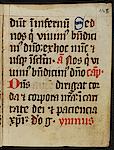 dūt īnfernū Sed
nos q̄ viuim⁹ bn̄dici
m⁹ dn̄o: ex hoc nūc ⁊
usq̄ ī sc̄lm. a Nos q̄ vi
uim⁹ bn̄dicim⁹ dn̄o cap̄
Dn̄s aut̄ dirigat cor
da ⁊ corpora nr̄a ī cari
tate dei ⁊ paciencia
xp̄i: d̄o ḡ. ymnus